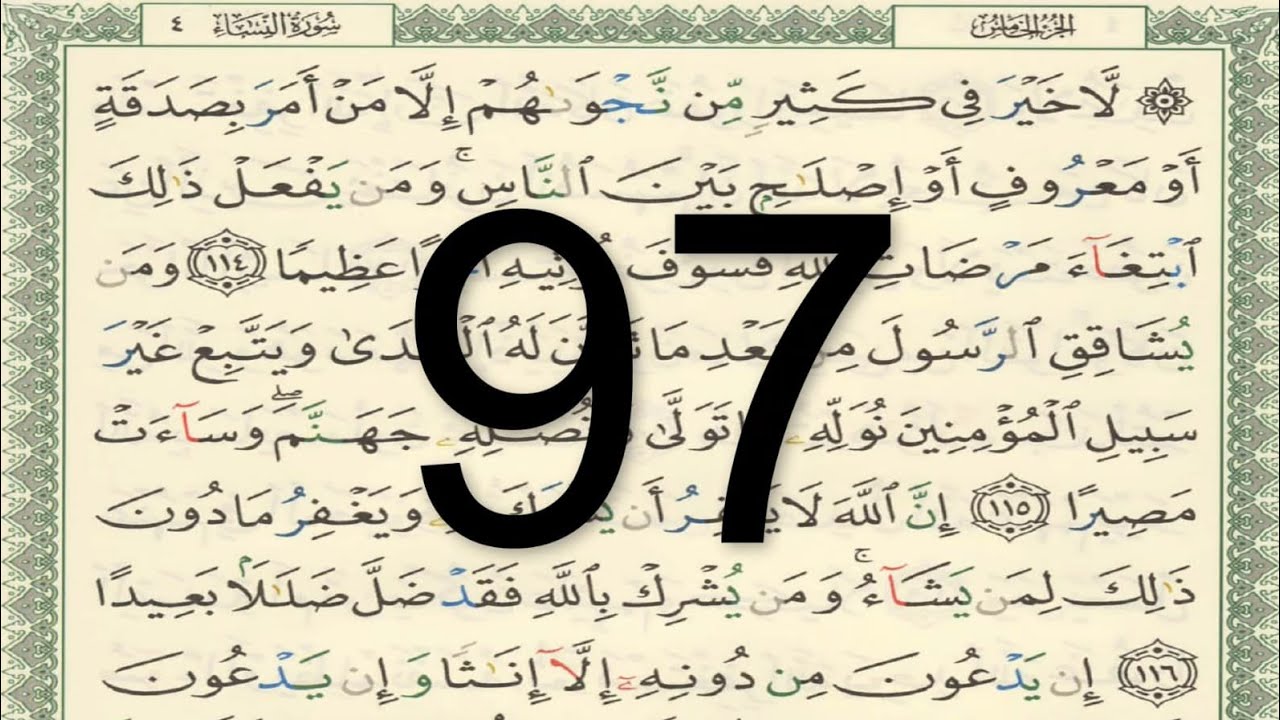 الجزء الخامس
سورة النساء ٤
۞ لَّا خَيْرَ فِى كَثِيرٍ مِّن نَّجْوَىٰهُمْ إِلَّا مَنْ أَمَرَ بِصَدَقَةٍ
أَوْ مَعْرُوفٍ أَوْ إِصْلَٰحٍۭ بَيْنَ ٱلنَّاسِ ۚ وَمَن يَفْعَلْ ذَٰلِكَ
ٱبْتِغَآءَ مَرْضَاتِ ٱللَّهِ فَسَوْفَ عَظِيمًا ١١٤ وَمَن
يُشَاقِقِ ٱلرَّسُولَ لَهُ وَيَتَّبِعْ غَيْرَ
سَبِيلِ ٱلْمُؤْمِنِينَ نُوَلِّهِۦ تَوَلَّىٰ جَهَنَّمَ ۖ وَسَآءَتْ
مَصِيرًا ١١٥ إِنَّ ٱللَّهَ لَا أَن وَيَغْفِرُ مَا دُونَ
ذَٰلِكَ لِمَن يَشَآءُ ۚ وَمَن يُشْرِكْ بِٱللَّهِ فَقَدْ ضَلَّ ضَلَٰلًۢا بَعِيدًا
١١٦ إِن يَدْعُونَ مِن دُونِهِۦٓ إِلَّآ إِنَٰثًا وَإِن يَدْعُونَ
97